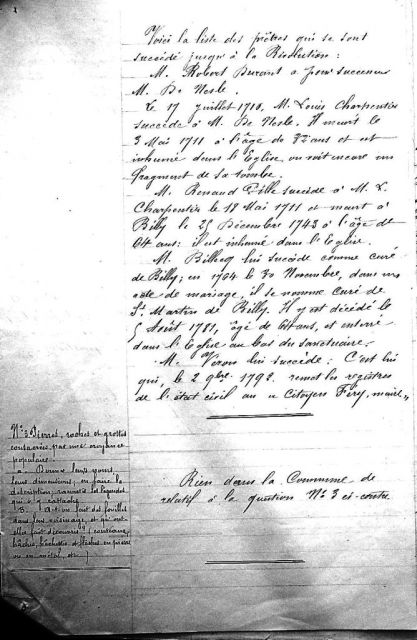 Voici la liste des prêtres qui se sont
succédé jusqu'à la Révolution :
M. Robert Durant a pour successeur
M. De Nesle.
Le 17 juillet 1710, M. Louis Charpentier
succède à M. De Nesle. Il meurt le
3 Mai 1711 à l'âge de 32 ans et est
inhumé dans l'Eglise, on voit encore un
fragment de sa tombe.
M. Renaud succède à M. L.
Charpentier le 18 Mai 1711 et meurt à
Billy le 28 Décembre 1743 à l'âge de
64 ans : il est inhumé dans l'Eglise.
M. Billecq lui succède comme curé
de Billy ; en 1764 le 30 Novembre, dans un
acte de mariage, il se nomme curé de
St Martin de Billy. Il y est décédé le
5 Août 1781, âgé de ans, et enterré
dans l'Eglise au bas du sanctuaire.
M. Véron lui succède : C'est lui
qui, le 2 9bre 1792 remet les registres
de l'état civil au Citoyen Féry, maire.
N° 3 Pierres, roches et grottes
consacrées par une croyance
populaire.
a. Donner leurs noms,
leurs dimensions, en faire la
description, ramener les légendes
qui s'y rattache.
B. A-t-on fait des fouilles
dans leur voisinage, et qu'ont-
elles fait découvrir ? (couteaux,
haches, hachettes et flèches en pierre
ou en métal, etc.)
Rien dans la Commune de
relatif à la question N° 3 ci-contre.